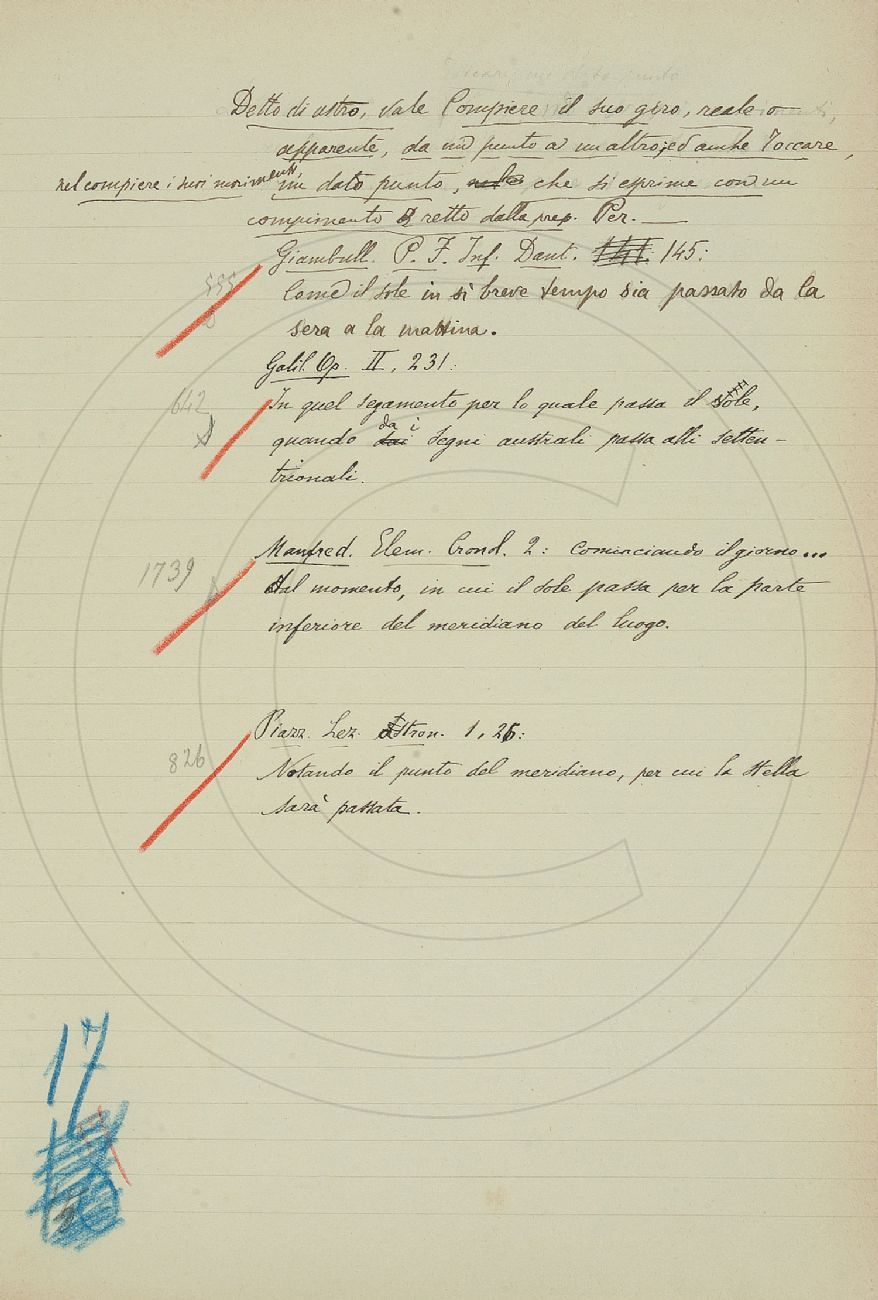 Detto di astro, vale Compiere il suo giro, reale o
apparente, da un punto a un altro; ed anche Toccare,
nel compiere i suoi movimenti, un dato punto, che si esprime con un
compimento retto dalla prep. Per. —
Giambull. P. F. Inf. Dant. 145:
555
Come il sole in sì breve tempo sia passato da la
sera a la mattina.
Galil. Op. II, 231:
642
In quel segamento per lo quale passa il sole,
quando da i segni australi passa alli setten-
trionali.
Manfred. Elem. Cronol. 2: Cominciando il giorno...
1739
dal momento, in cui il sole passa per la parte
inferiore del meridiano del luogo.
Piazz. Lez. Astron. 1, 26:
826
Notando il punto del meridiano, per cui la stella
sarà passata.
17